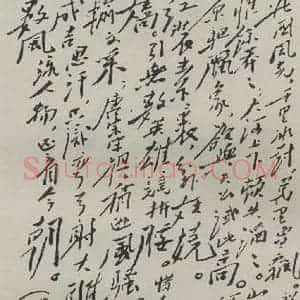 北国风光，千里冰封，万里雪飘
惟余莽莽。大河上下，顿失滔滔。
原驰蜡象，欲与天公试比高。
红装素裹，分外妖娆。
娇。引无数英雄竞折腰。惜
输文采。唐宗宋祖，稍逊风骚
成吉思汗，只识弯弓射大雕
数风流人物，还看今朝。